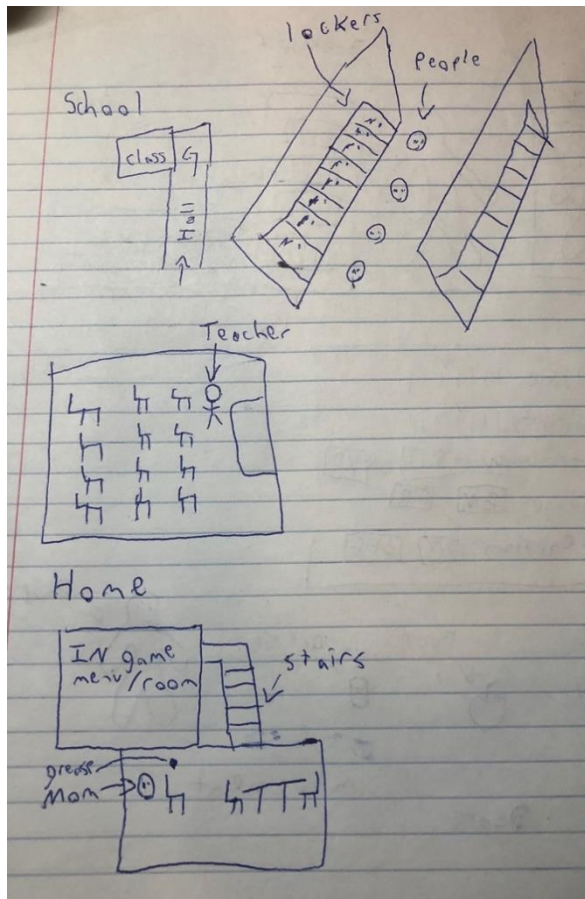 lockers
People
School
class
Hall
Teacher
Home
IN game
menu/room
stairs
grease
Mom